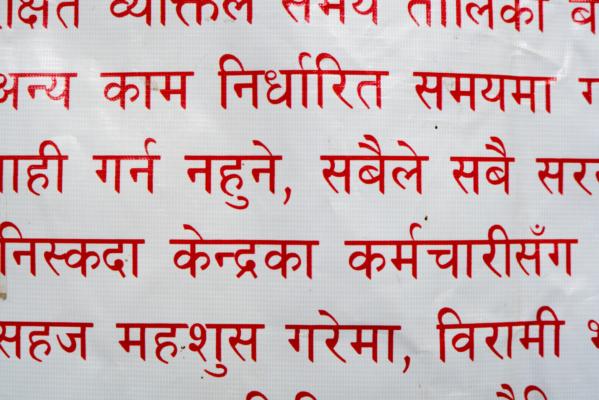 व्यक्तिले समय तालिका
अन्य काम निर्धारित समयमा
गर्न नहुने, सबैले सबै
निस्कदा केन्द्रका कर्मचारीसँग
सहज महःशुस गरेमा, विरामी